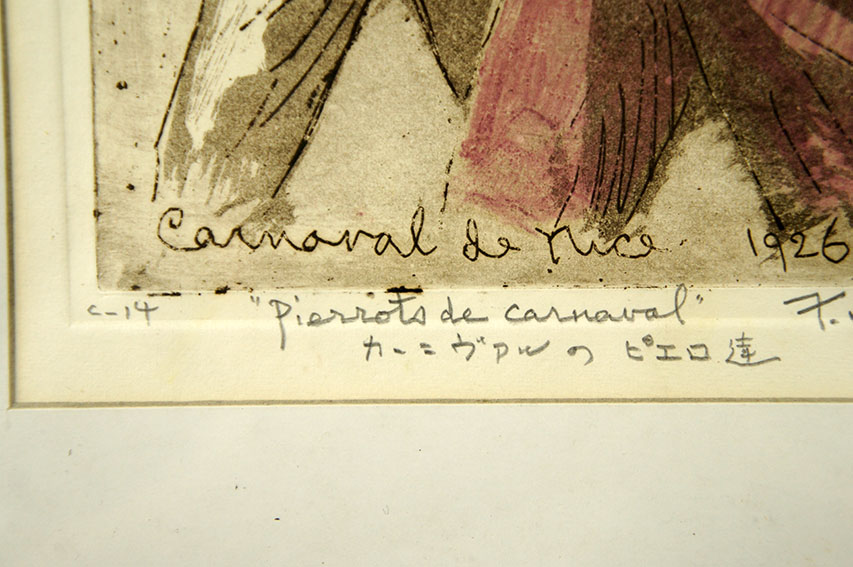 Carnaval de Nice 1926
c-14 "Pierrots de carnaval" F.
カーニヴァルの ピエロ達